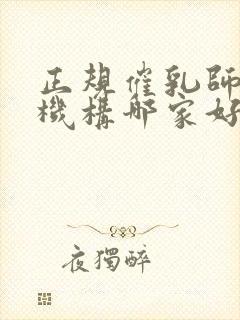 正規催乳師
機構哪家好
夜獨醉